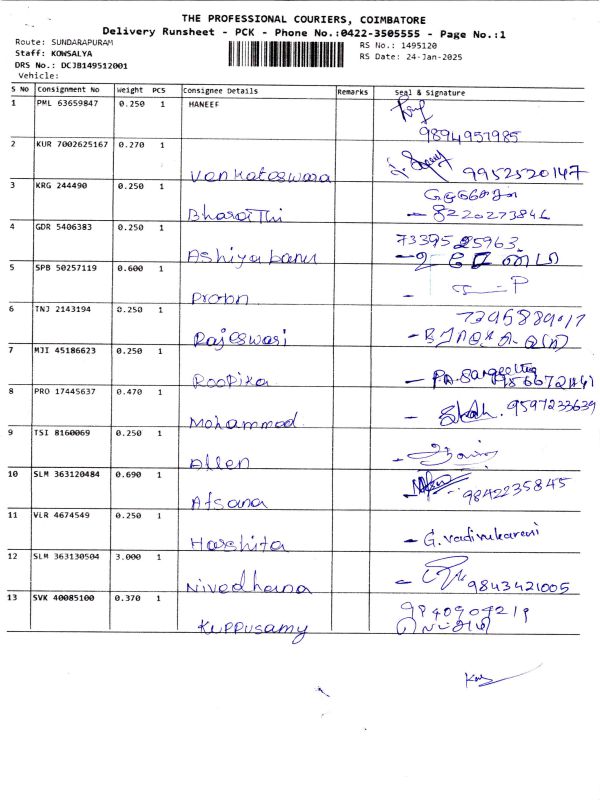 THE PROFESSIONAL COURIERS, COIMBATORE
Delivery Runsheet - PCK - Phone No.:0422-3505555 - Page No.:1
Route: SUNDARAPURAM
RS No.: 1495120
Staff: KOWSALYA
RS Date: 24-Jan-2025
DRS No.: DCJB149512001
Vehicle:
S No Consignment No Weight PCS Consignee Details Remarks Seal & Signature
1 PML 63659847 0.250 1 HANEEF
9894957985
2 KUR 7002625167 0.270 1
Venkateswara 9952520147
3 KRG 244490 0.250 1
Bharathi - 8220273846
4 GDR 5406383 0.250 1
Ashiya banu
5 SPB 50257119 0.600 1
- P
6 TNJ 2143194 0.250 1
Rajeswari
7 MJI 45186623 0.250 1
Roopika - P.A. Sangeetha
8 PRO 17445637 0.470 1
Mohammad - 9597233639
9 TSI 8160069 0.250 1
Allen
10 SLM 363120484 0.690 1
Afsana - 9842235845
11 VLR 4674549 0.250 1
Harshita - G. Vadivukarasi
12 SLM 363130504 3.000 1
Nivedhana - 9843421005
13 SVK 40085100 0.370 1
9840904219
Kuppusamy